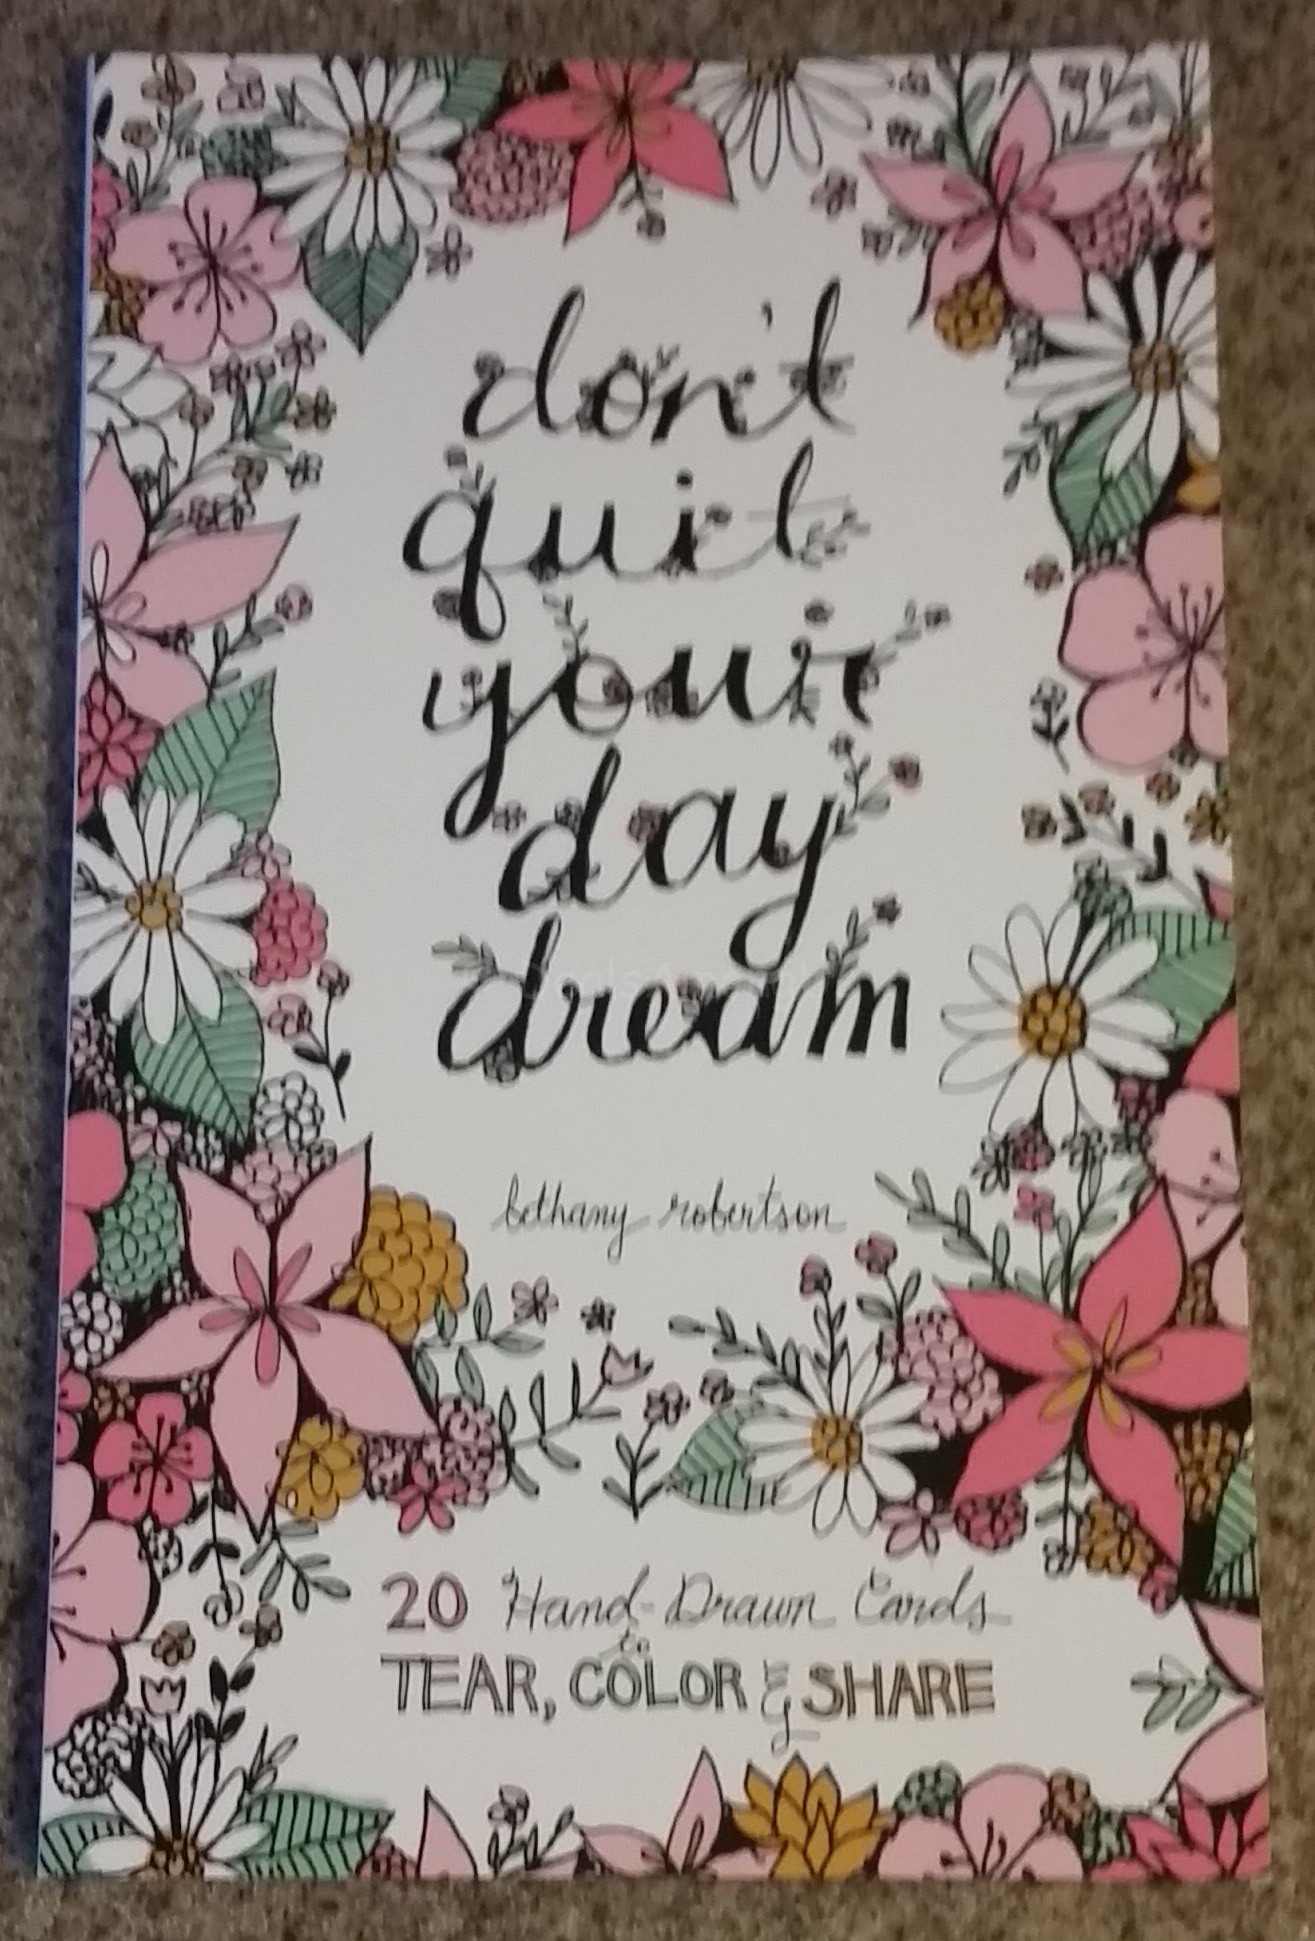 don't
quit
your
day
dream
bethany robertson
20 Hand-Drawn Cards
to
TEAR, COLOR & SHARE